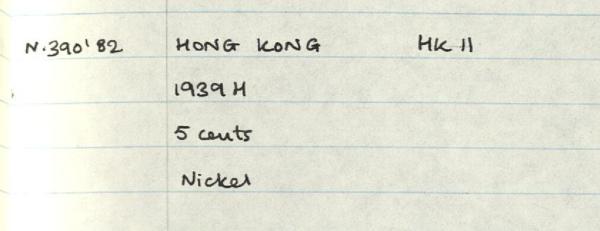 N.390'82 HONG KONG HK 11
1939 H
5 cents
Nickel